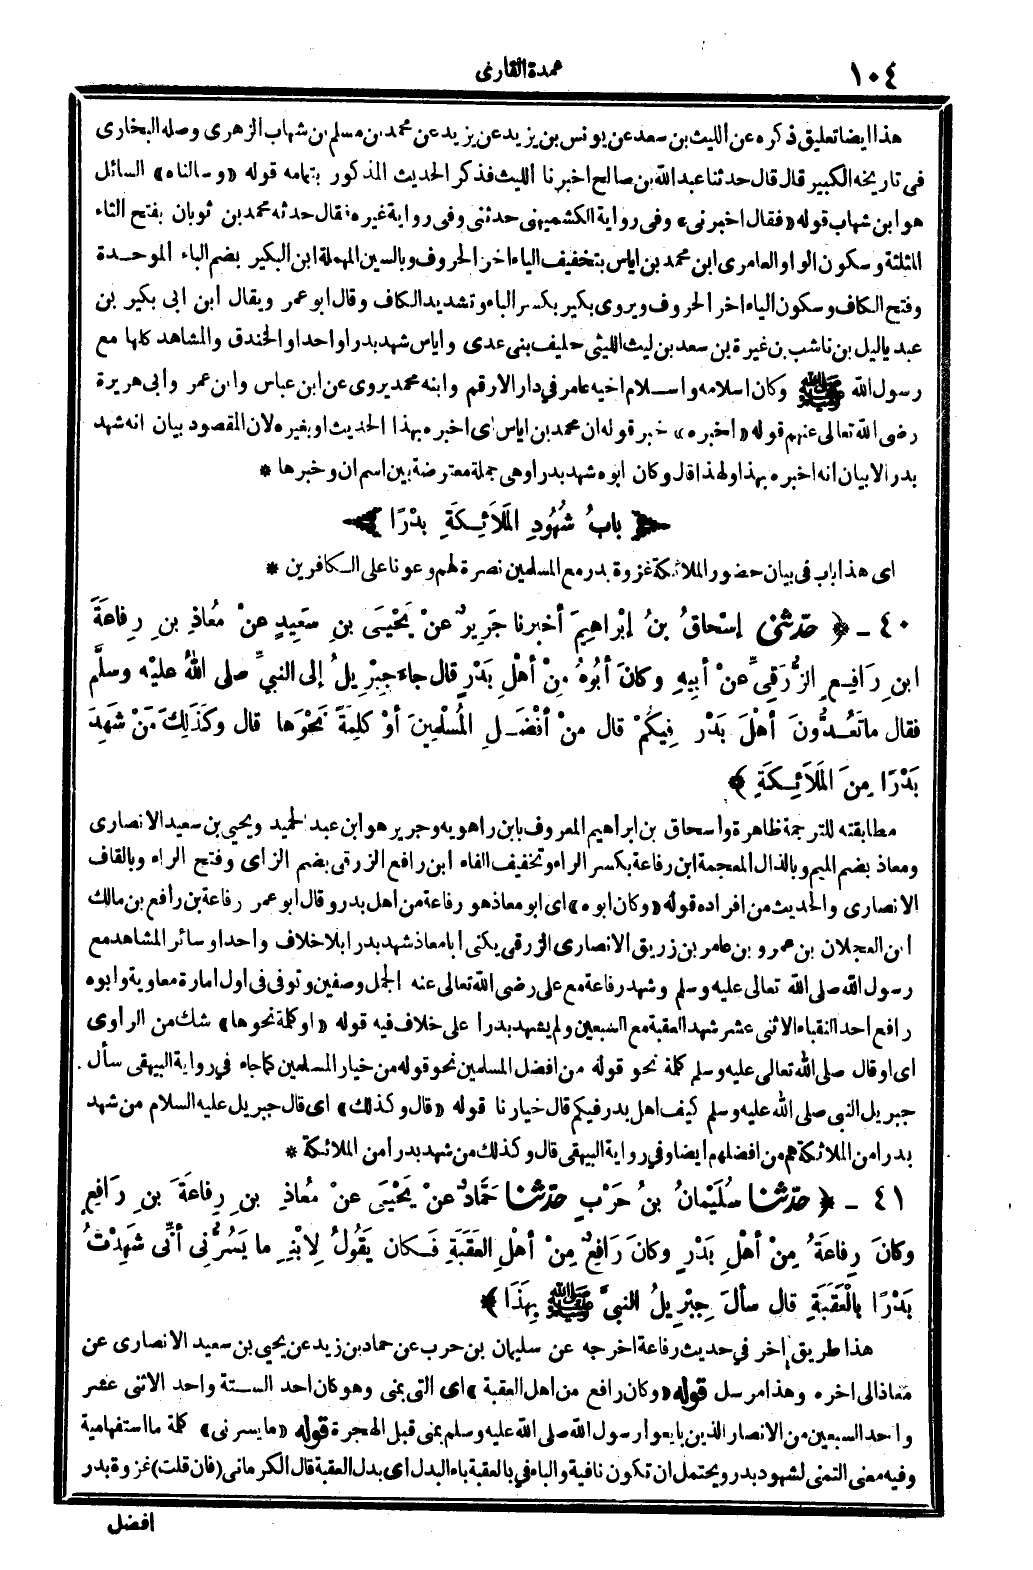 ١٠٤ عمدة القارئ
هذا ايضا تعليق ذكره عن الليث بن سعد عن يونس بن يزيد عن يزيد عن محمد بن مسلم بن شهاب الزهرى وصله البخارى
فى تاريخه الكبير قال قال حدثنا عبد الله بن صالح اخبرنا الليث فذكر الحديث المذكور بتمامه قوله «وسالناه» السائل
هو ابن شهاب قوله «فقال اخبرنى» وفى رواية الكشميهنى حدثنى وفى رواية غيره فقال حدثه محمد بن ثوبان بفتح الثاء
المثلثة وسكون الواو العامرى ابن محمد بن اياس بتخفيف الياء اخر الحروف وبالسين المهملة ابن البكير بضم الباء الموحدة
وفتح الكاف وسكون الياء اخر الحروف ويروى بكير بكسر الباء وتشديد الكاف وقال ابو عمر ويقال ابن ابى بكير بن
عبد ياليل بن ناشب بن غيرة بن سعد بن ليث الليثى حليف بنى عدى واياس شهد بدرا واحدا والخندق والمشاهد كلها مع
رسول الله ﷺ وكان اسلامه واسلام اخيه عامر فى دار الارقم وابنه محمد يروى عن ابن عباس وابن عمر وأبى هريرة
رضى الله تعالى عنهم قوله «اخبره» خبر قوله ان محمد بن اياس اى اخبره بهذا الحديث او بغيره لان المقصود بيان انه شهد
بدرا لا بيان انه اخبره بهذا ولهذا قال وكان ابوه شهد بدرا وهى جملة معترضة بين اسم ان وخبرها *
﴿ بابُ شُهُودِ المَلاَئِكَةِ بَدْرًا ﴾
اى هذا باب فى بيان حضور الملائكة غزوة بدر مع المسلمين نصرة لهم وعونا على الكافرين *
٤٠ - ﴿ حدّثنى إسْحاقُ بنُ إبْراهِيمَ أخبرنا جَرِيرٌ عنْ يَحْيَى بنِ سَعِيدٍ عنْ مُعاذِ بنِ رِفاعَةَ
ابنِ رَافِعٍ الزُّرَقِىِّ عنْ أبِيهِ وكانَ أبُوهُ مِنْ أهْلِ بَدْرٍ قال جاءَ جِبْرِيلُ إلى النبيِّ صلى اللهُ عليْه وسلَّم
فقال ماتَعُدُّونَ أهْلَ بَدْر فِيكُمْ قال مِنْ أفْضَلِ المُسْلِمِينَ أوْ كلِمَةً نَحْوَها قال وكَذَلِكَ مَنْ شَهِدَ
بَدْرًا مِنَ المَلاَئِكَةِ ﴾
مطابقته للترجمة ظاهرة واسحاق بن ابراهيم المعروف بابن راهويه وجرير هو ابن عبد الحميد ويحيى بن سعيد الانصارى
ومعاذ بضم الميم وبالذال المعجمة ابن رفاعة بكسر الراء وتخفيف الفاء ابن رافع الزرقى بضم الزاى وفتح الراء وبالقاف
الانصارى والحديث من افراده قوله «وكان ابوه» اى ابو معاذ هو رفاعة من اهل بدر وقال ابو عمر رفاعة بن رافع بن مالك
ابن العجلان بن عمرو بن عامر بن زريق الانصارى الزرقى يكنى ابا معاذ شهد بدرا بلا خلاف واحدا وسائر المشاهد مع
رسول الله صلى الله تعالى عليه وسلم وشهد رفاعة مع على رضى الله تعالى عنه الجمل وصفين وتوفى فى اول امارة معاوية وابوه
رافع احد النقباء الاثنى عشر شهد العقبة مع السبعين ولم يشهد بدرا على خلاف فيه قوله «او كلمة نحوها» شك من الراوى
اى او قال صلى الله تعالى عليه وسلم كلمة نحو قوله من افضل المسلمين نحو قوله من خيار المسلمين كما جاء فى رواية البيهقى سأل
جبريل النبى صلى الله عليه وسلم كيف اهل بدر فيكم قال خيارنا قوله «قال وكذلك» اى قال جبريل عليه السلام من شهد
بدرا من الملائكة هم من افضلهم ايضا وفى رواية البيهقى قال وكذلك من شهد بدرا من الملائكة *
٤١ - ﴿ حدّثنا سُلَيْمانُ بنُ حَرْبٍ حدّثنا حَمَّادٌ عنْ يَحْيَى عنْ مُعاذِ بنِ رِفاعَةَ بنِ رَافِعٍ
وكانَ رِفاعَةُ مِنْ أهْلِ بَدْرٍ وكانَ رَافِعٌ مِنْ أهْلِ العَقَبَةِ فَكان يَقُولُ لِابْنِهِ ما يَسُرُّنِى أنِّى شَهِدْتُ
بَدْرًا بِالْعَقَبَةِ قال سألَ جِبْرِيلُ النبيَّ ﷺ بِهَذَا ﴾
هذا طريق اخر فى حديث رفاعة اخرجه عن سليمان بن حرب عن حماد بن زيد عن يحيى بن سعيد الانصارى عن
معاذ الى اخره وهذا مرسل قوله «وكان رافع من اهل العقبة» اى التى بمنى وهو كان احد الستة واحد الاثنى عشر
واحد السبعين من الانصار الذين بايعوا رسول الله صلى الله عليه وسلم بمنى قبل الهجرة قوله «ما يسرنى» كلمة ما استفهامية
وفيه معنى التمنى لشهود بدر ويحتمل ان تكون نافية والباء فى بالعقبة باء البدل اى بدل العقبة قال الكرمانى (فان قلت) غزوة بدر
افضل